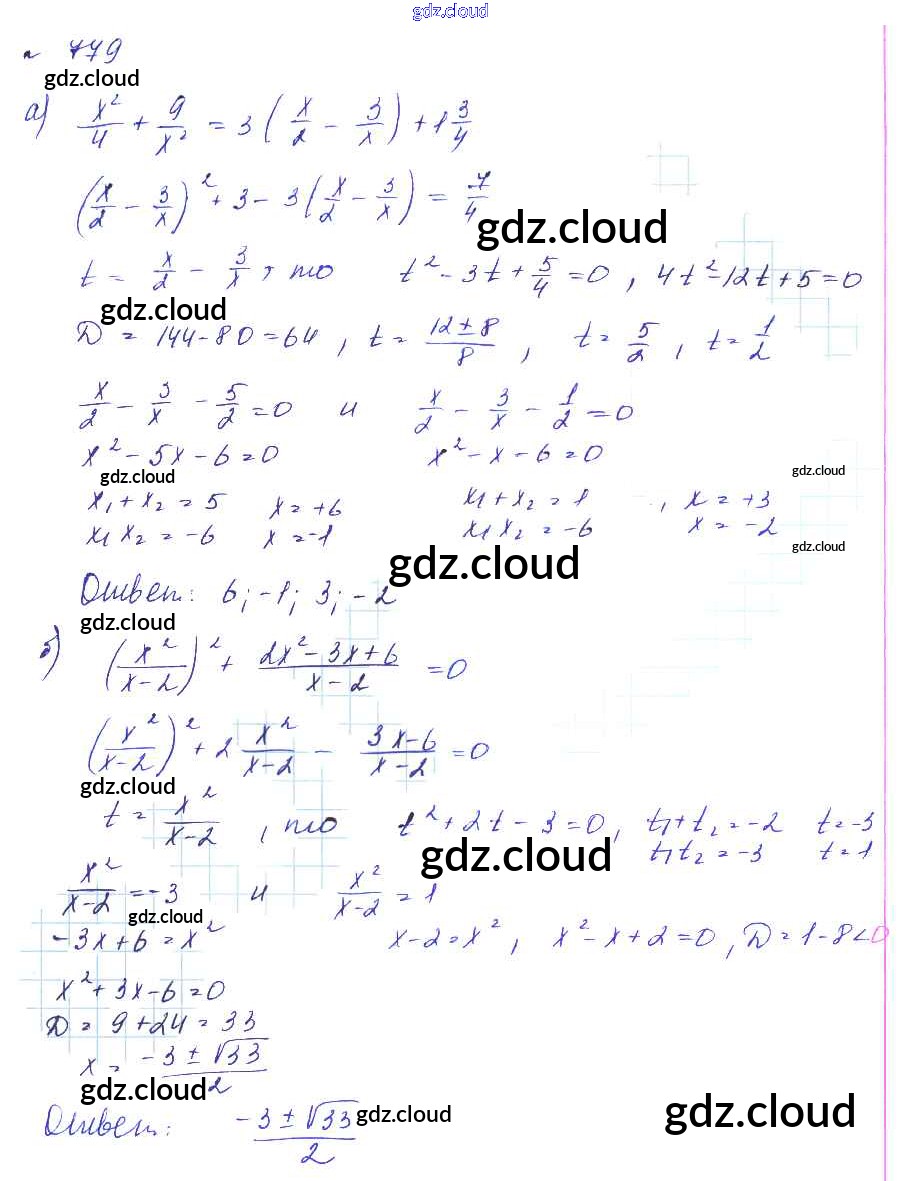 gdz.cloud
n 779
gdz.cloud
а) x²/4 + 9/x² = 3(x/2 - 3/x) + 1 3/4
(x/2 - 3/x)² + 3 - 3(x/2 - 3/x) = 7/4
gdz.cloud
t = x/2 - 3/x, то t² - 3t + 5/4 = 0, 4t² - 12t + 5 = 0
gdz.cloud
D = 144 - 80 = 64, t = (12 ± 8)/8, t = 5/2, t = 1/2
x/2 - 3/x - 5/2 = 0 и x/2 - 3/x - 1/2 = 0
x² - 5x - 6 = 0 x² - x - 6 = 0
gdz.cloud gdz.cloud
x₁ + x₂ = 5 x = +6 x₁ + x₂ = 1, x = +3
x₁x₂ = -6 x = -1 x₁x₂ = -6 x = -2
gdz.cloud gdz.cloud
Ответ: 6; -1; 3; -2
gdz.cloud
б) (x²/(x-2))² + (2x² - 3x + 6)/(x-2) = 0
(x²/(x-2))² + 2 x²/(x-2) - (3x-6)/(x-2) = 0
gdz.cloud
t = x²/(x-2), то t² + 2t - 3 = 0, t₁ + t₂ = -2 t = -3
t₁t₂ = -3 t = 1
gdz.cloud
x²/(x-2) = -3 и x²/(x-2) = 1
gdz.cloud
-3x + 6 = x² x - 2 = x², x² - x + 2 = 0, D = 1 - 8 < 0
x² + 3x - 6 = 0
D = 9 + 24 = 33
x = (-3 ± √33)/2
gdz.cloud gdz.cloud gdz.cloud
Ответ: (-3 ± √33)/2